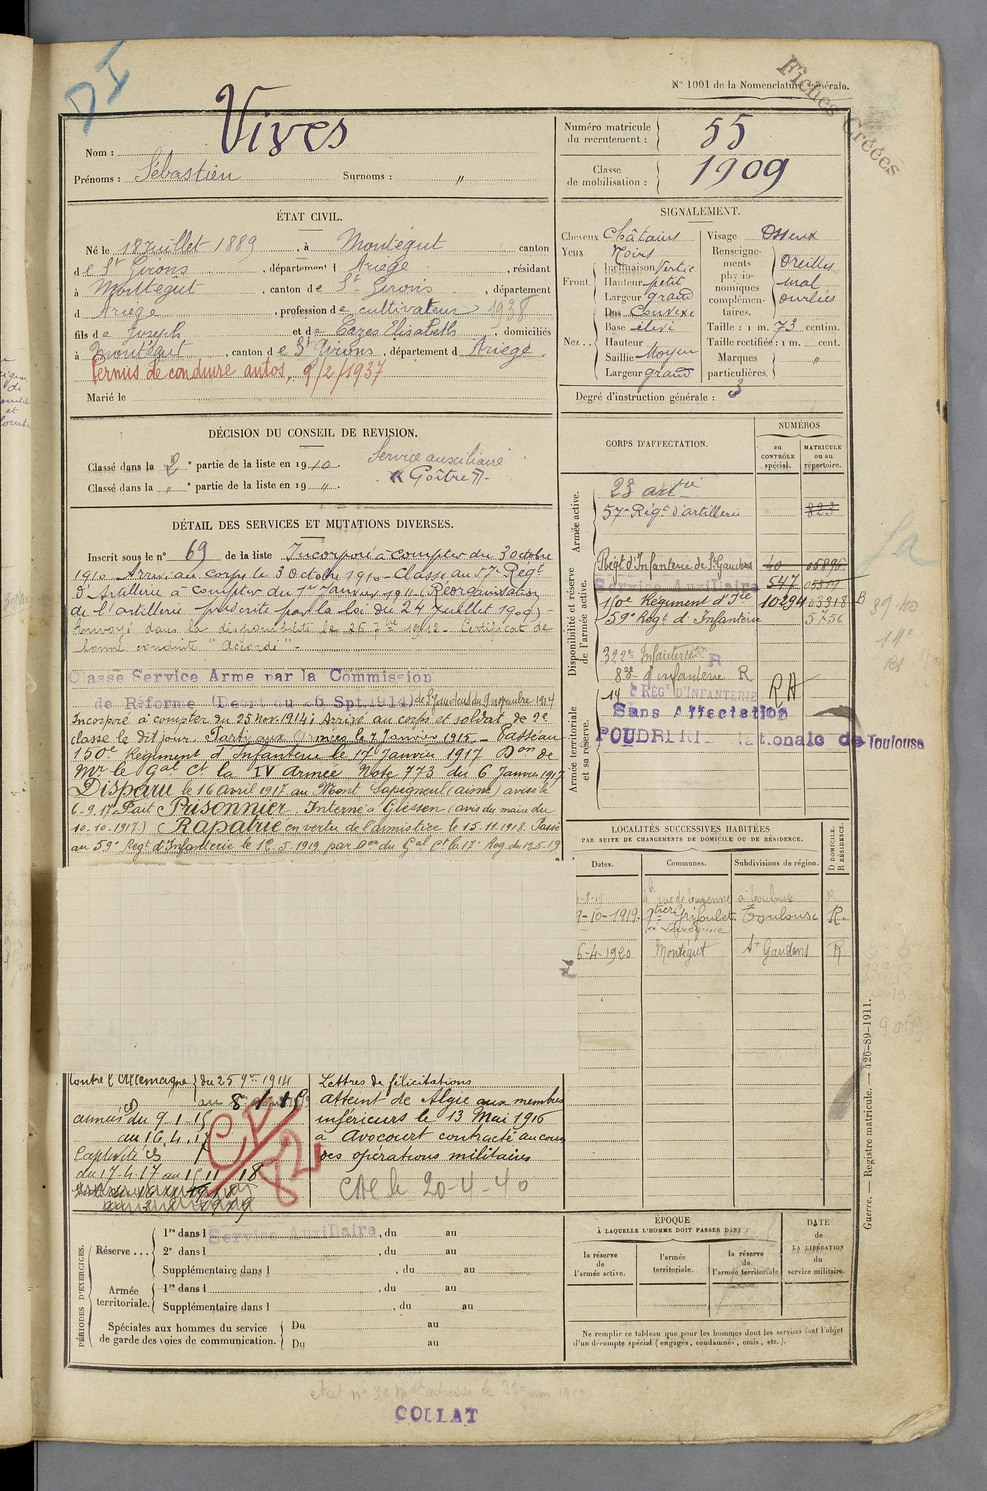 DI
N° 1001 de la Nomenclature générale.
Fiches Créées
Nom : Vives
Prénoms : Sébastien Surnoms : "
Numéro matricule du recrutement : 55
Classe de mobilisation : 1909
ÉTAT CIVIL.
Né le 18 Juillet 1889, à Montégut canton
de St Girons, département d Ariège, résidant
à Montégut, canton de St Girons, département
d Ariège, profession de cultivateur 1938
fils de Joseph et de Cazes Elisabeth, domiciliés
à Montégut, canton de St Girons, département d Ariège.
Permis de conduire autos, 9/2/1937
Marié le
SIGNALEMENT.
Cheveux Châtains
Yeux Noirs
Front. Inclinaison Vertic
Hauteur petit
Largeur grand
Nez... Dos Convexe
Base élevé
Hauteur
Saillie Moyen
Largeur grand
Visage Osseux
Renseignements physionomiques complémentaires. Oreilles mal ourlées
Taille : 1 m. 73 centim.
Taille rectifiée : 1 m. cent.
Marques particulières. "
Degré d'instruction générale : 3
DÉCISION DU CONSEIL DE REVISION.
Classé dans la 2e partie de la liste en 1910. Service auxiliaire
Classé dans la " e partie de la liste en 19 ". Goître
DÉTAIL DES SERVICES ET MUTATIONS DIVERSES.
Inscrit sous le n° 69 de la liste Incorporé à compter du 3 octobre
1910. Arrivé au corps le 3 Octobre 1910. Classé au 57e Régt
d'Artillerie à compter du 1er Janvier 1911 (Réorganisation
de l'artillerie prescrite par la loi du 24 Juillet 1909)
Renvoyé dans la disponibilité le 26 7bre 1912. Certificat de
bonne conduite "Accordé".
Classé Service Armé par la Commission
de Réforme (Décret du 26 Spt. 1914) de St Gaudens du 9 novembre 1914
Incorporé à compter du 25 Nov. 1914; Arrivé au corps et soldat de 2e
classe le dit jour. Parti aux armées le 7 Janvier 1915. Passé au
150e Régiment d'Infanterie le 17 Janvier 1917 Don de
Mr le Gal Ct la IV Armée Note 773 du 6 Janvier 1917
Disparu le 16 avril 1917 au Mont Sapigneul (aisne) avis de
6.9.17 Fait Prisonnier. Interné à Giessen (avis du maire du
10-10-1917) Rapatrié en vertu de l'armistice le 15.11.1918. Passé
au 59e Régt d'Infanterie le 12.5.1919 par Don du Gal Ct la 17e Rég. du 12-5-19
contre l'Allemagne du 25 9bre 1914
au 8
armées du 9.1.15
au 16.4.17
Captivité
du 17.4.17 au 15 11 18
CP
82
Lettres de félicitations
atteint de Algie aux membres
inférieurs le 13 Mai 1916
à Avocourt contracté au cours
des opérations militaires
le 20-4-40
CORPS D'AFFECTATION.
NUMÉROS
au CONTRÔLE spécial.
MATRICULE ou au répertoire.
Armée active.
23 artrie
57e Régt d'artillerie 823
Disponibilité et réserve de l'armée active.
Régt d'Infanterie de St Gaudens 40
Service Auxiliaire 547
150e Régiment d'Ife 10294 03318
59e Régt d'Infanterie 5756
322e Infanterie R
83e d'infanterie R
Armée territoriale et sa réserve.
14 RÉGt D'INFANTERIE RA
Sans Affectation
POUDRERIE Nationale de Toulouse
LOCALITÉS SUCCESSIVES HABITÉES
PAR SUITE DE CHANGEMENTS DE DOMICILE OU DE RÉSIDENCE.
Dates. Communes. Subdivisions de région. D DOMICILE. R RÉSIDENCE.
rue de Turenne à Toulouse R
9-10-1919. Toulouse R.
6-4-1920 Montégut St Gaudens R
Guerre. — Registre matricule. — 426-89-1911.
PÉRIODES D'EXERCICES.
Réserve... 1re dans l Service Auxiliaire, du au
2e dans l , du au
Supplémentaire dans l , du au
Armée territoriale. 1re dans l , du au
Supplémentaire dans l , du au
Spéciales aux hommes du service de garde des voies de communication. Du au
Du au
ÉPOQUE
À LAQUELLE L'HOMME DOIT PASSER DANS :
la réserve de l'armée active.
l'armée territoriale.
la réserve de l'armée territoriale.
DATE de LA LIBÉRATION du service militaire.
Ne remplir ce tableau que pour les hommes dont les services font l'objet
d'un décompte spécial (engagés, condamnés, omis, etc.).
COLLAT